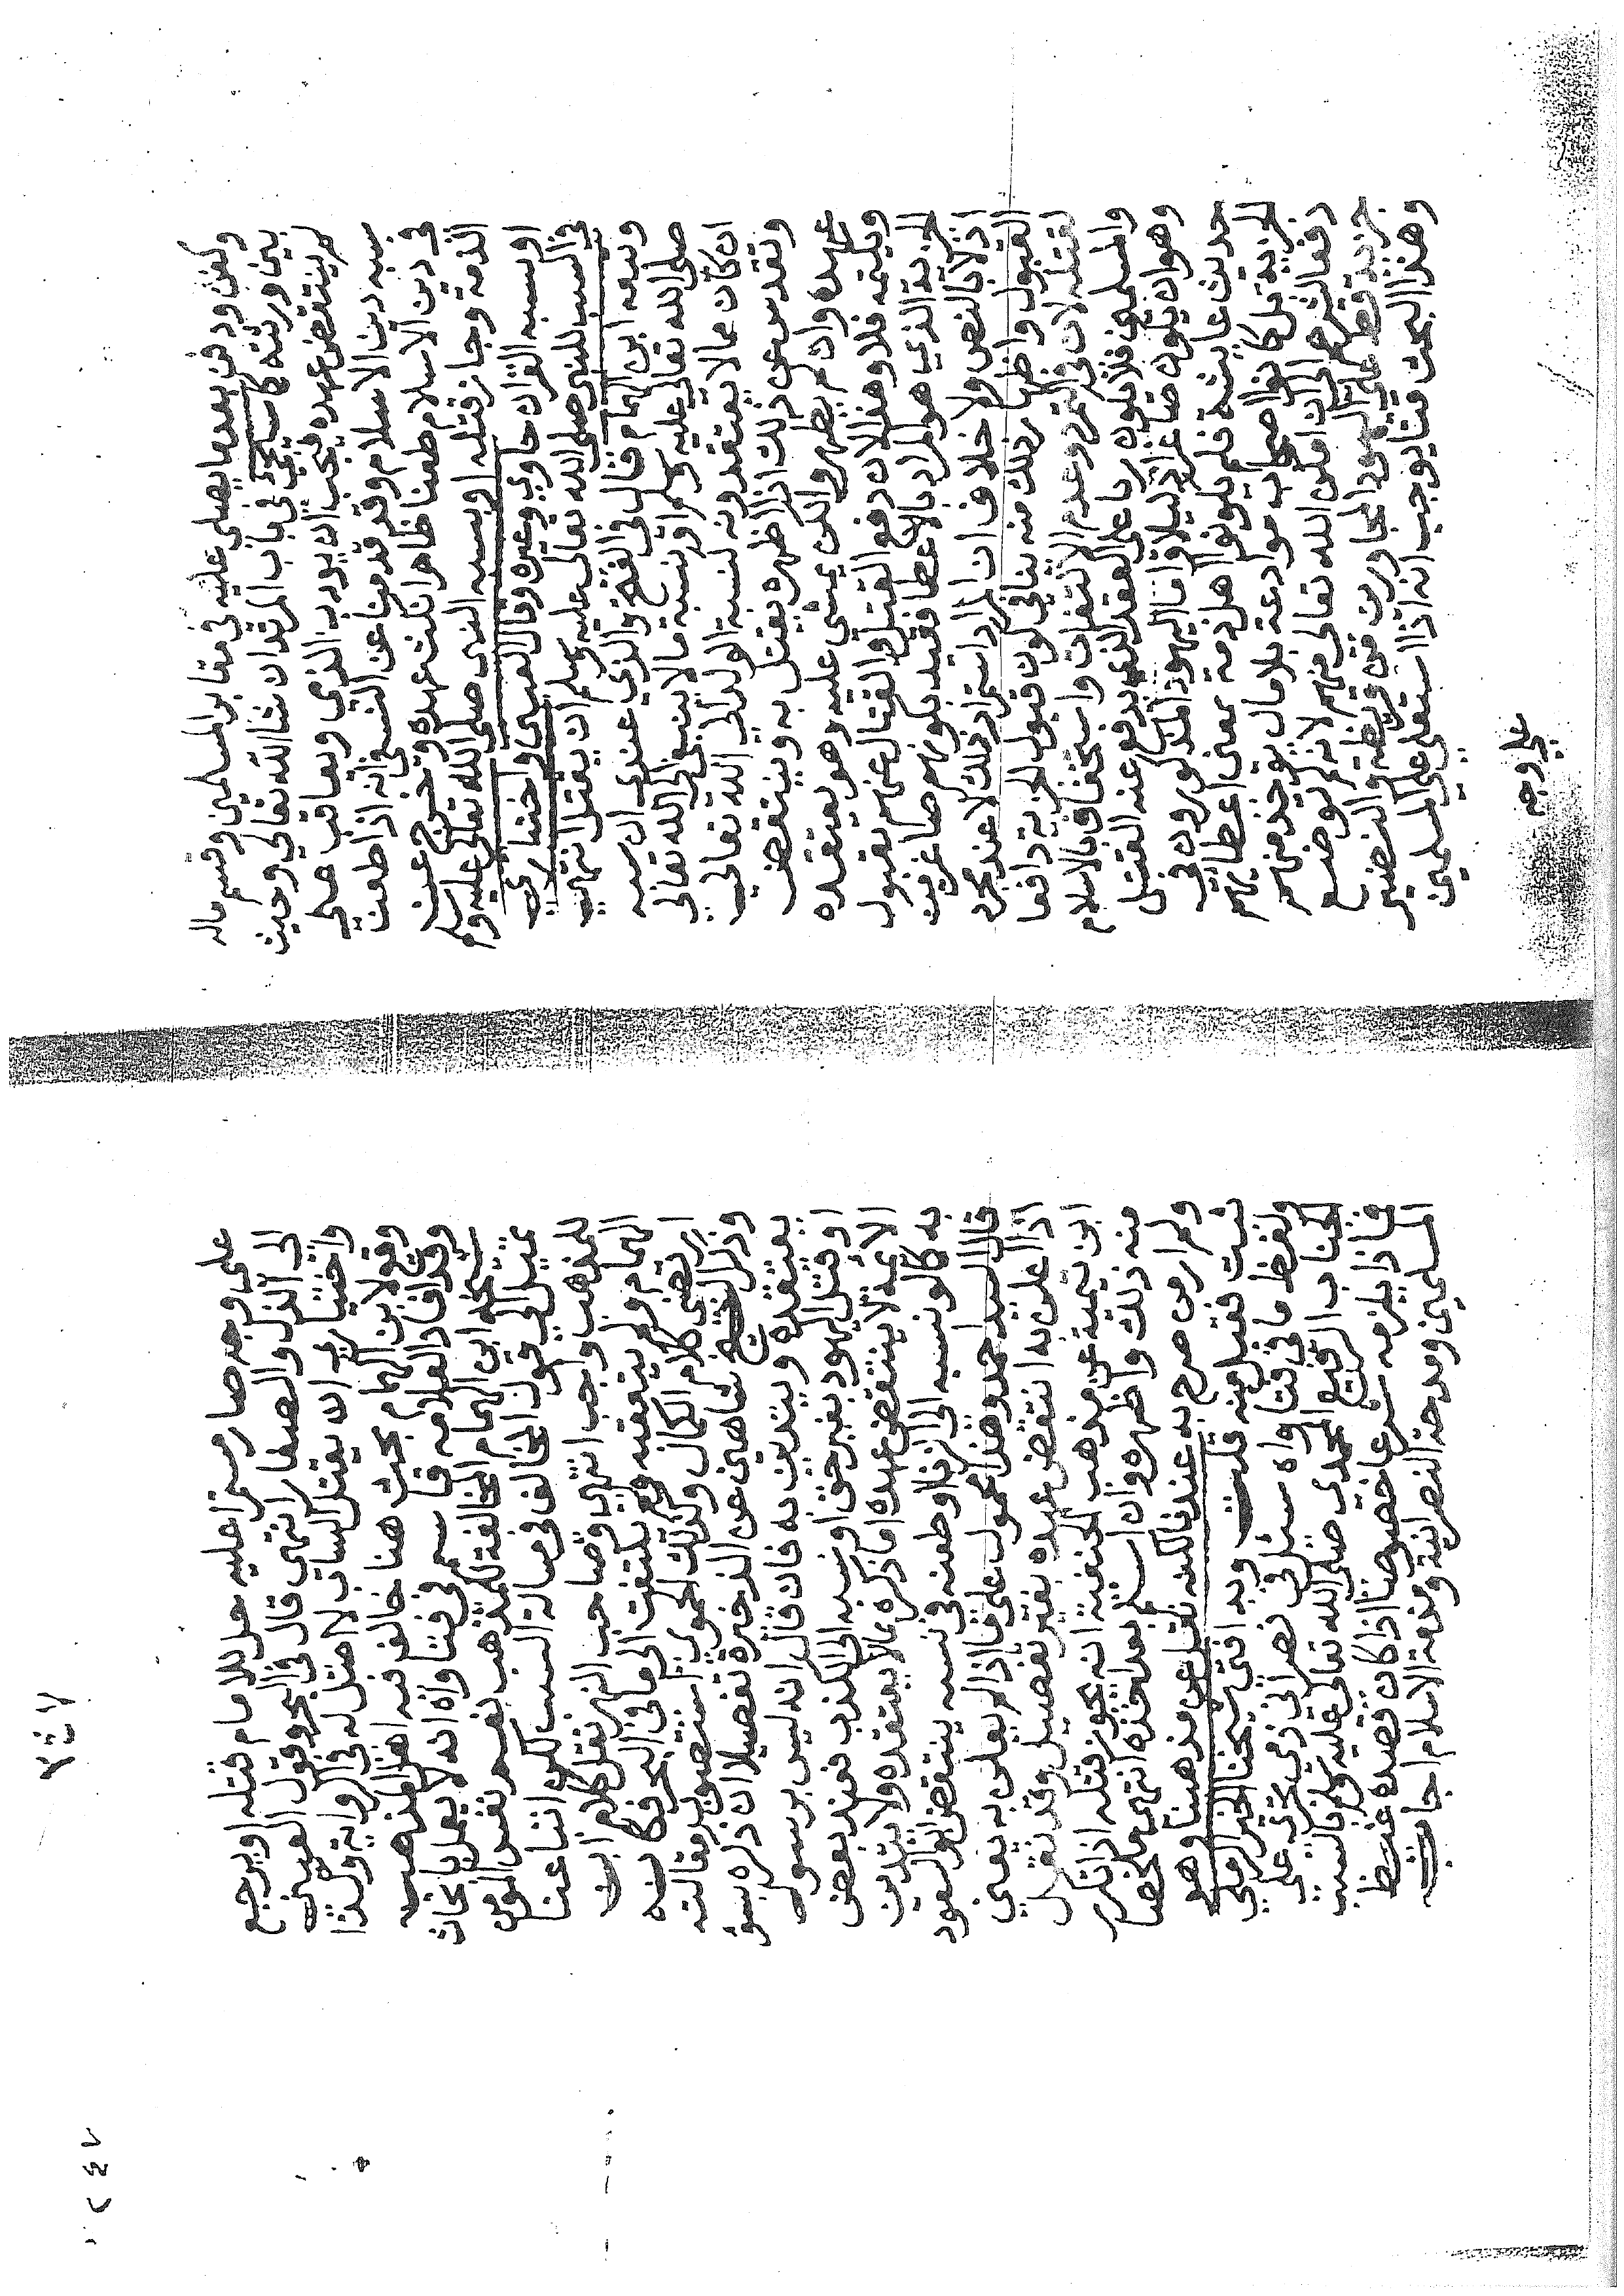 وكفن ودفن بعدما يصلى عليه في مقابر المسلمين وقسم ماله
بين ورثته كما سيجئ في باب المرتد ان شا الله تعالى وحيث
لم ينتقض عهده فيجب ان يودب الذمي ويعاقب على
سبه دين الاسلام وقد قدمنا عن النسفي انه اذا طعن
في دين الاسلام طعنا ظاهرا نكث عهده وخرج عن
الذمة وجاز قتله او بسبه النبي صلى الله تعالى عليه وسلم
او بسبه القران حاوي وغيره وقال العيني واختياري
في السب للنبي صلى الله تعالى عليه وسلم ان يقتل انتهى
وتبعه ابن الهمام فقال في الفتح والذي عندي ان سبه
صلى الله تعالى عليه وسلم او نسبة مالا ينبغي الى الله تعالى
ان كان مما لا يعتقدونه كنسبة الولد الى الله تعالى
وتقدس عن ذلك اذا اظهره يقتل به وينتقض
عهده وان لم يظهر ولكن عثر عليه وهو يعتقده
ويكتمه فلا وهذا لان دفع القتل والقتال عنهم بقبول
الجزية الذي هو المراد بالاعطا مقيد بكونهم صاغرين
اذلا بالنص ولا خلاف ان المراد استمرار ذلك لا عند مجرد
القبول واظهار ذلك منه ينافي كون قبول الجزية دافعا
لقتله لان في التمرد وعدم الالتفات واستخفاف بالاسلام
والمسلمين فلا يكون جاريا على العقد الذي يدفع عنه القتل
وهو ان يكون صاغرا ذليلا واما اليهود المذكورون في
حديث عائشة فلم يكونوا اهل ذمة بمعنى اعطايهم
الجزية بل كانوا اصحاب موادعة بلا مال يوخذ منهم
دفعا لشرهم الى ان امكن الله تعالى منهم لانه لم توضع
جزية قط على اليهود المجاورين من قريظة والنضير
وهذا البحث منا يوجب انه اذا استعلى على المسلمين
على وجه
على وجه صار متمردا عليه حل للامام قتله او يرجع
الى الذل والصغار انتهى قال في البحر وقول العيني
واختياري ان يقتل بالسب لا اصل له في الرواية وكذا
وقع لابن الهمام بحث هنا خالف فيه اهل المذهب
وقد افاد العلامة قاسم في فتاواه انه لا يعمل بابحاث
شيخه ابن الهمام المخالفة للمذهب نعم نفس المومن
تميل الى قول المخالف في مسالة السب لكن اتباعنا
للمذهب واجب انتهى وصاحب النهر نقل كلام ابن
الهمام ولم يتعقبه ولم يلتفت الى ما في البحر فكانه
ارتضى كلام الكمال وكذلك الحموي استصوب مقالته
وذكر الشيخ شاهين عن الذخيرة تفصيلا ان ذكره بسؤ
يعتقده ويتدين به فان قال انه ليس برسول
او قتل اليهود بغير حق او نسبه الى الكذب فعند بعض
الائمة لا ينتقض عهده اما ذكره بما لا يعتقده ولا يتدين
به كما لو نسبه الى الزنا او طعنه في نسبه ينتقض ابو السعود
قال السيد احمد وهذا محمول على ما اذا لم يعلن به يعني
اذا اعلن به انتقض عهده بغير تفصيل وقد نقل
ابن تيمية عن مذهب الحنفية انه يجوز قتله اذا تكرر
منه ذلك واظهره وان اسلم بعد اخذه انتهى ملخصا
ولم ار من صرح به عندنا لكنه نقل عن مذهبنا وهو
ثبت فقبل منه قلت وبه افتى شيخنا الخير الرملي
ولفظ ما في فتاواه سئل في نصراني ذمي تجرى على
الجناب الرفيع المحمدي صلى الله تعالى عليه وسلم بالسب
فماذا يلزمه شرعا خصوصا اذا كان قصده غيظ
المسلمين ومدحة النصرانية ومذمة الاسلام اجاب